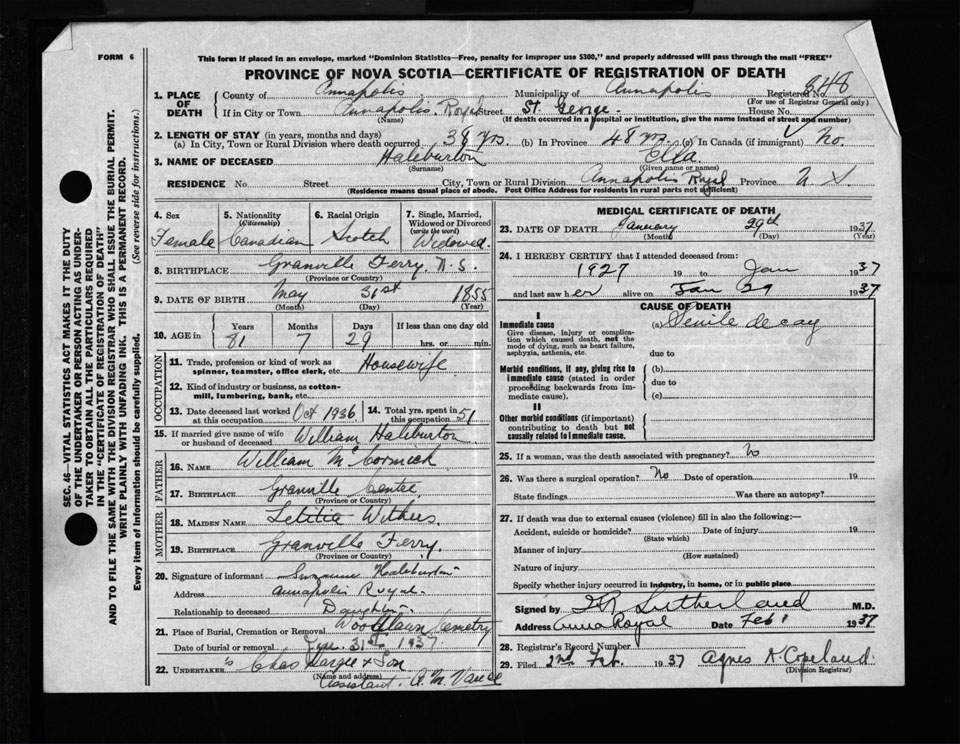 FORM 6
This form if placed in an envelope, marked "Dominion Statistics—Free, penalty for improper use $300," and properly addressed will pass through the mail "FREE"
PROVINCE OF NOVA SCOTIA—CERTIFICATE OF REGISTRATION OF DEATH
1. PLACE OF DEATH
County of Annapolis Municipality of Annapolis Registered No. 348
(For use of Registrar General only)
If in City or Town Annapolis Royal Street St. George House No.
(Name) (If death occurred in a hospital or institution, give the name instead of street and number)
2. LENGTH OF STAY (in years, months and days)
(a) In City, Town or Rural Division where death occurred 38 yrs. (b) In Province 48 yrs. (c) In Canada (if immigrant) No.
3. NAME OF DECEASED Haliburton Ella.
(Surname) (Given name or names)
RESIDENCE No. Street City, Town or Rural Division Annapolis Royal Province N S.
(Residence means usual place of abode. Post Office Address for residents in rural parts not sufficient)
4. Sex Female
5. Nationality (Citizenship) Canadian
6. Racial Origin Scotch
7. Single, Married, Widowed or Divorced (write the word) Widowed
8. BIRTHPLACE Granville Ferry. N.S.
(Province or Country)
9. DATE OF BIRTH May 31st 1855
(Month) (Day) (Year)
10. AGE in Years 81 Months 7 Days 29 If less than one day old hrs. or min.
OCCUPATION
11. Trade, profession or kind of work as spinner, teamster, office clerk, etc. Housewife
12. Kind of industry or business, as cotton-mill, lumbering, bank, etc.
13. Date deceased last worked at this occupation Oct 1936
14. Total yrs. spent in this occupation 51
15. If married give name of wife or husband of deceased William Haliburton
FATHER
16. NAME William McCormick
17. BIRTHPLACE Granville Centre
(Province or Country)
MOTHER
18. MAIDEN NAME Letitia Withers
19. BIRTHPLACE Granville Ferry.
(Province or Country)
20. Signature of informant Haliburton
Address Annapolis Royal.
Relationship to deceased Daughter
21. Place of Burial, Cremation or Removal Woodlawn Cemetry
Date of burial or removal 31st 1937
22. UNDERTAKER's Chas & Son
(Name and address)
Assistant. A. M.
MEDICAL CERTIFICATE OF DEATH
23. DATE OF DEATH January 29th 1937
(Month) (Day) (Year)
24. I HEREBY CERTIFY that I attended deceased from:
1927 19 to Jan 1937
and last saw her alive on Jan 29 1937
CAUSE OF DEATH
I
Immediate cause (a) Senile decay
Give disease, injury or complication which caused death, not the mode of dying, such as heart failure, asphyxia, asthenia, etc.
due to
Morbid conditions, if any, giving rise to immediate cause (stated in order proceeding backwards from immediate cause).
(b)
due to
(c)
II
Other morbid conditions (if important) contributing to death but not causally related to immediate cause.
25. If a woman, was the death associated with pregnancy? No
26. Was there a surgical operation? No Date of operation 19
State findings Was there an autopsy?
27. If death was due to external causes (violence) fill in also the following:—
Accident, suicide or homicide? Date of injury 19
(State which)
Manner of injury
(How sustained)
Nature of injury
Specify whether injury occurred in industry, in home, or in public place
Signed by Sutherland M.D.
Address Anna Royal Date Feb 1 1937
28. Registrar's Record Number
29. Filed 2nd Feb. 1937 Agnes Copeland
(Division Registrar)
SEC. 46—VITAL STATISTICS ACT MAKES IT THE DUTY
OF THE UNDERTAKER OR PERSON ACTING AS UNDER-
TAKER TO OBTAIN ALL THE PARTICULARS REQUIRED
IN THE "CERTIFICATE OF REGISTRATION OF DEATH"
AND TO FILE THE SAME WITH THE DIVISION REGISTRAR WHO SHALL ISSUE THE BURIAL PERMIT.
WRITE PLAINLY WITH UNFADING INK. THIS IS A PERMANENT RECORD.
Every item of information should be carefully supplied. (See reverse side for instructions.)